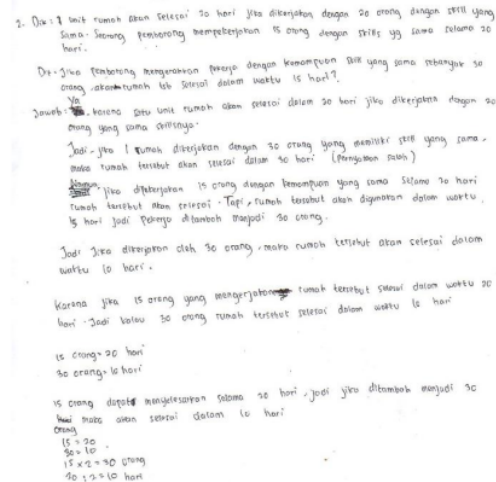 2. Dik : 1 unit rumah akan selesai 30 hari jika dikerjakan dengan 20 orang dengan skill yang
sama. Seorang pemborong mempekerjakan 15 orang dengan skills yg sama selama 20
hari.
Dit : Jika pemborong mengerahkan pekerja dengan kemampuan skill yang sama sebanyak 30
orang, akankah rumah tsb selesai dalam waktu 15 hari?
Jawab : Ya, karena satu unit rumah akan selesai dalam 30 hari jika dikerjakan dengan 20
orang yang sama skillsnya.
Jadi, jika 1 rumah dikerjakan dengan 30 orang yang memiliki skill yang sama,
maka rumah tersebut akan selesai dalam 30 hari (Pernyataan salah)
jika dikerjakan 15 orang dengan kemampuan yang sama selama 20 hari
rumah tersebut akan selesai. Tapi, rumah tersebut akan digunakan dalam waktu
15 hari jadi pekerja ditambah menjadi 30 orang.
Jadi jika dikerjakan oleh 30 orang, maka rumah tersebut akan selesai dalam
waktu 10 hari.
Karena jika 15 orang yang mengerjakan rumah tersebut selesai dalam waktu 20
hari. Jadi kalau 30 orang rumah tersebut selesai dalam waktu 10 hari
15 orang = 20 hari
30 orang = 10 hari
15 orang dapat menyelesaikan selama 20 hari, jadi jika ditambah menjadi 30
orang maka akan selesai dalam 10 hari
15 = 20
30 = 10
15 x 2 = 30 orang
20 : 2 = 10 hari